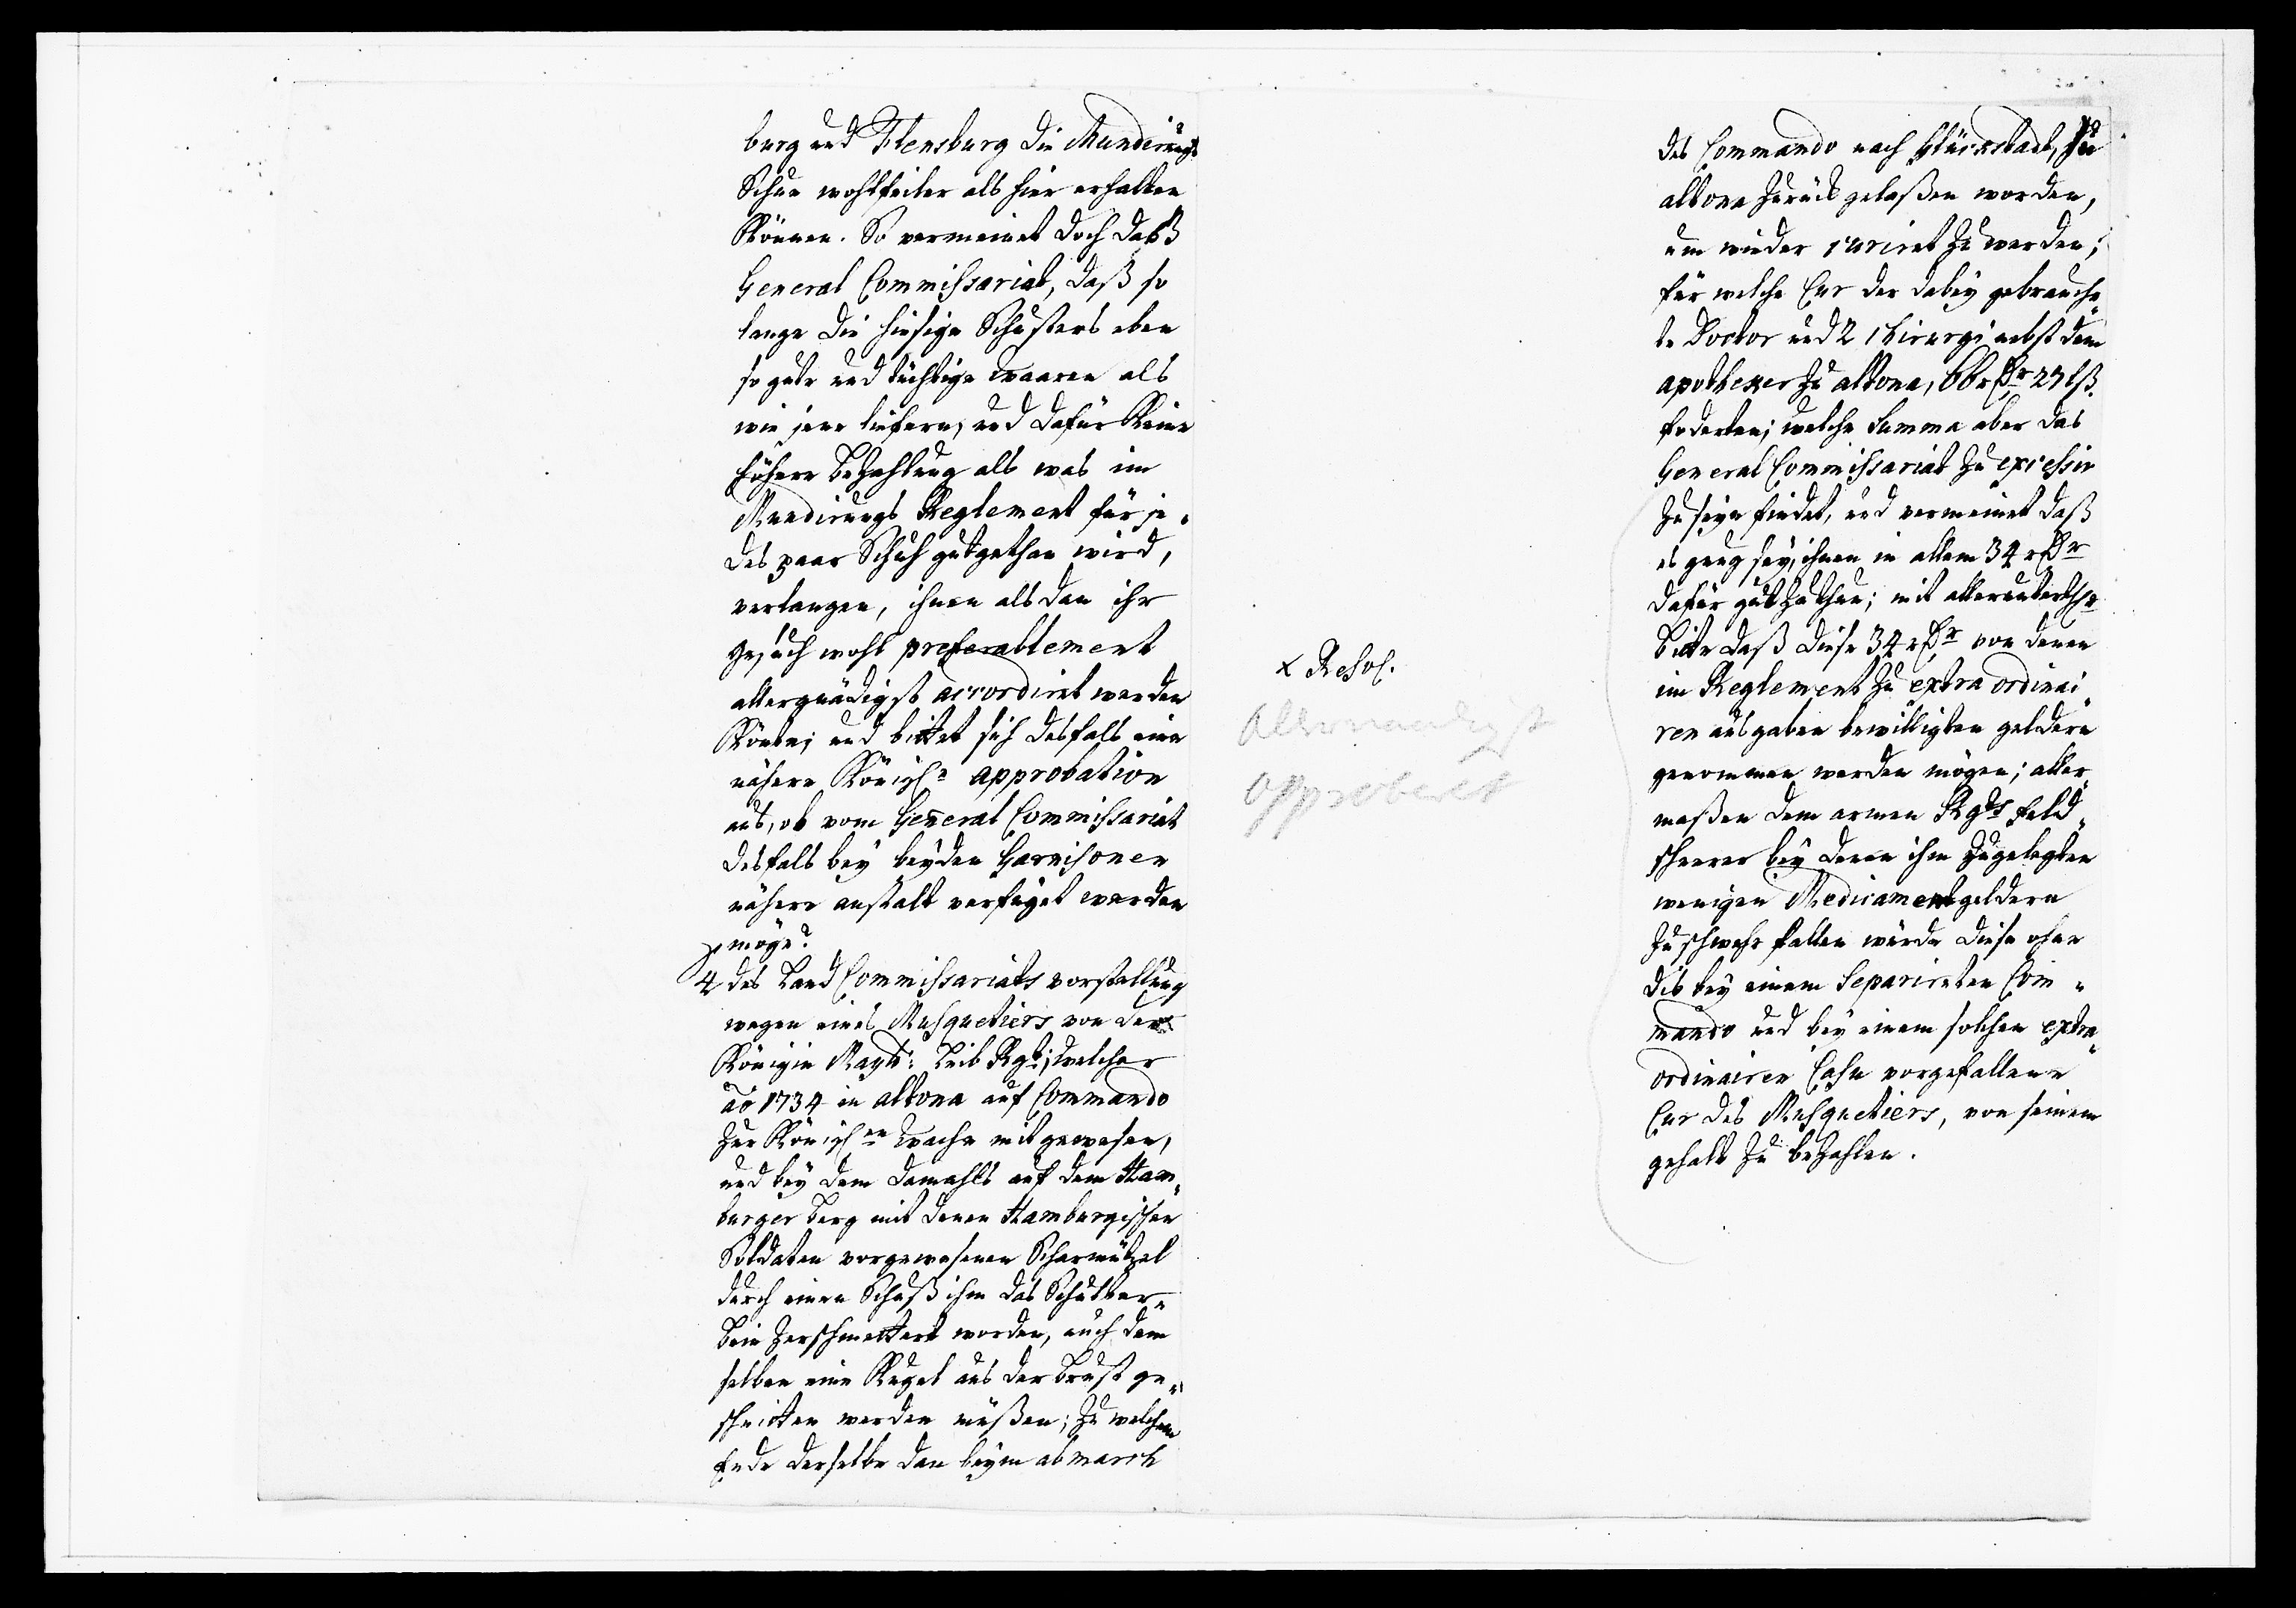 burg und Flensburg die Mundirungs
Schue wohlfeiler als hier erhalten
Können. So vermeinet doch daß
General Commissariat, daß so
lange die hiesige Schusters eben
so gute und tüchtige waaren als
wie jene liefern, und dafür Keine
höhere bezahlung als was im
Mundirungs Reglement für je„
des paar Schuh gutgethan wird,
verlangen, ihnen alsdan ihr
gesuch wohl preferablement
allergnädigst accordiret werden
Könte; und bittet sich desfals eine
nähere Königl. approbation
aus, ob vom General Commissariat
desfals bey beyden Garnisonen
nähere anstalt verfüget werden
möge?
4 des Land Commissariats vorstellung
wegen eines Musquetiers von der
Königin Maytt: Leib Rgt; welcher
ao 1734 in altona auf Commando
zur Königlen wache mit gewesen,
und bey dem damahls auf dem Ham„
burger berg mit denen Hamburgischen
Soldaten vorgewesenen Scharmützel
durch einen Schuß ihm das Schulter„
bein zerschmettert worden, auch dem
selben eine Kugel aus der brust ge„
schnitten werden müßen; zu welchem
Ende derselbe dan beym abmarch
x Resol.
Allernaadigst
approberet
des Commando nach Glückstadt, zu
altona zurück gelaßen worden,
um wieder curiret zu werden;
für welche Cur der dabey gebrauch„
te Doctor und 2 Chirurgi nebst dem
apotheker zu altona, 66 rdr 23 lß.
foderten; welche Summa aber das
General Commissariat zu excessiv
zu seyn findet, und vermeinet daß
es gnug sey, ihnen in allem 34 rdr
dafür gut zu thun; mit alleruntertgr
bitte daß diese 34 rdr von denen
im Reglement zu extra ordinai„
ren ausgaben bewilligten geldern
genommen werden mögen; aller„
maßen dem armen Rgts feld„
scherer bey denen ihm zugelegten
wenigen Medicamentgeldern
zu schwehr fallen würde diese ohne
dis bey einem Separirten Com„
mando und bey einem solchen extra„
ordinairen Casu vorgefallene
Cur des Musquetiers, von seinem
gehalt zu bezahlen.